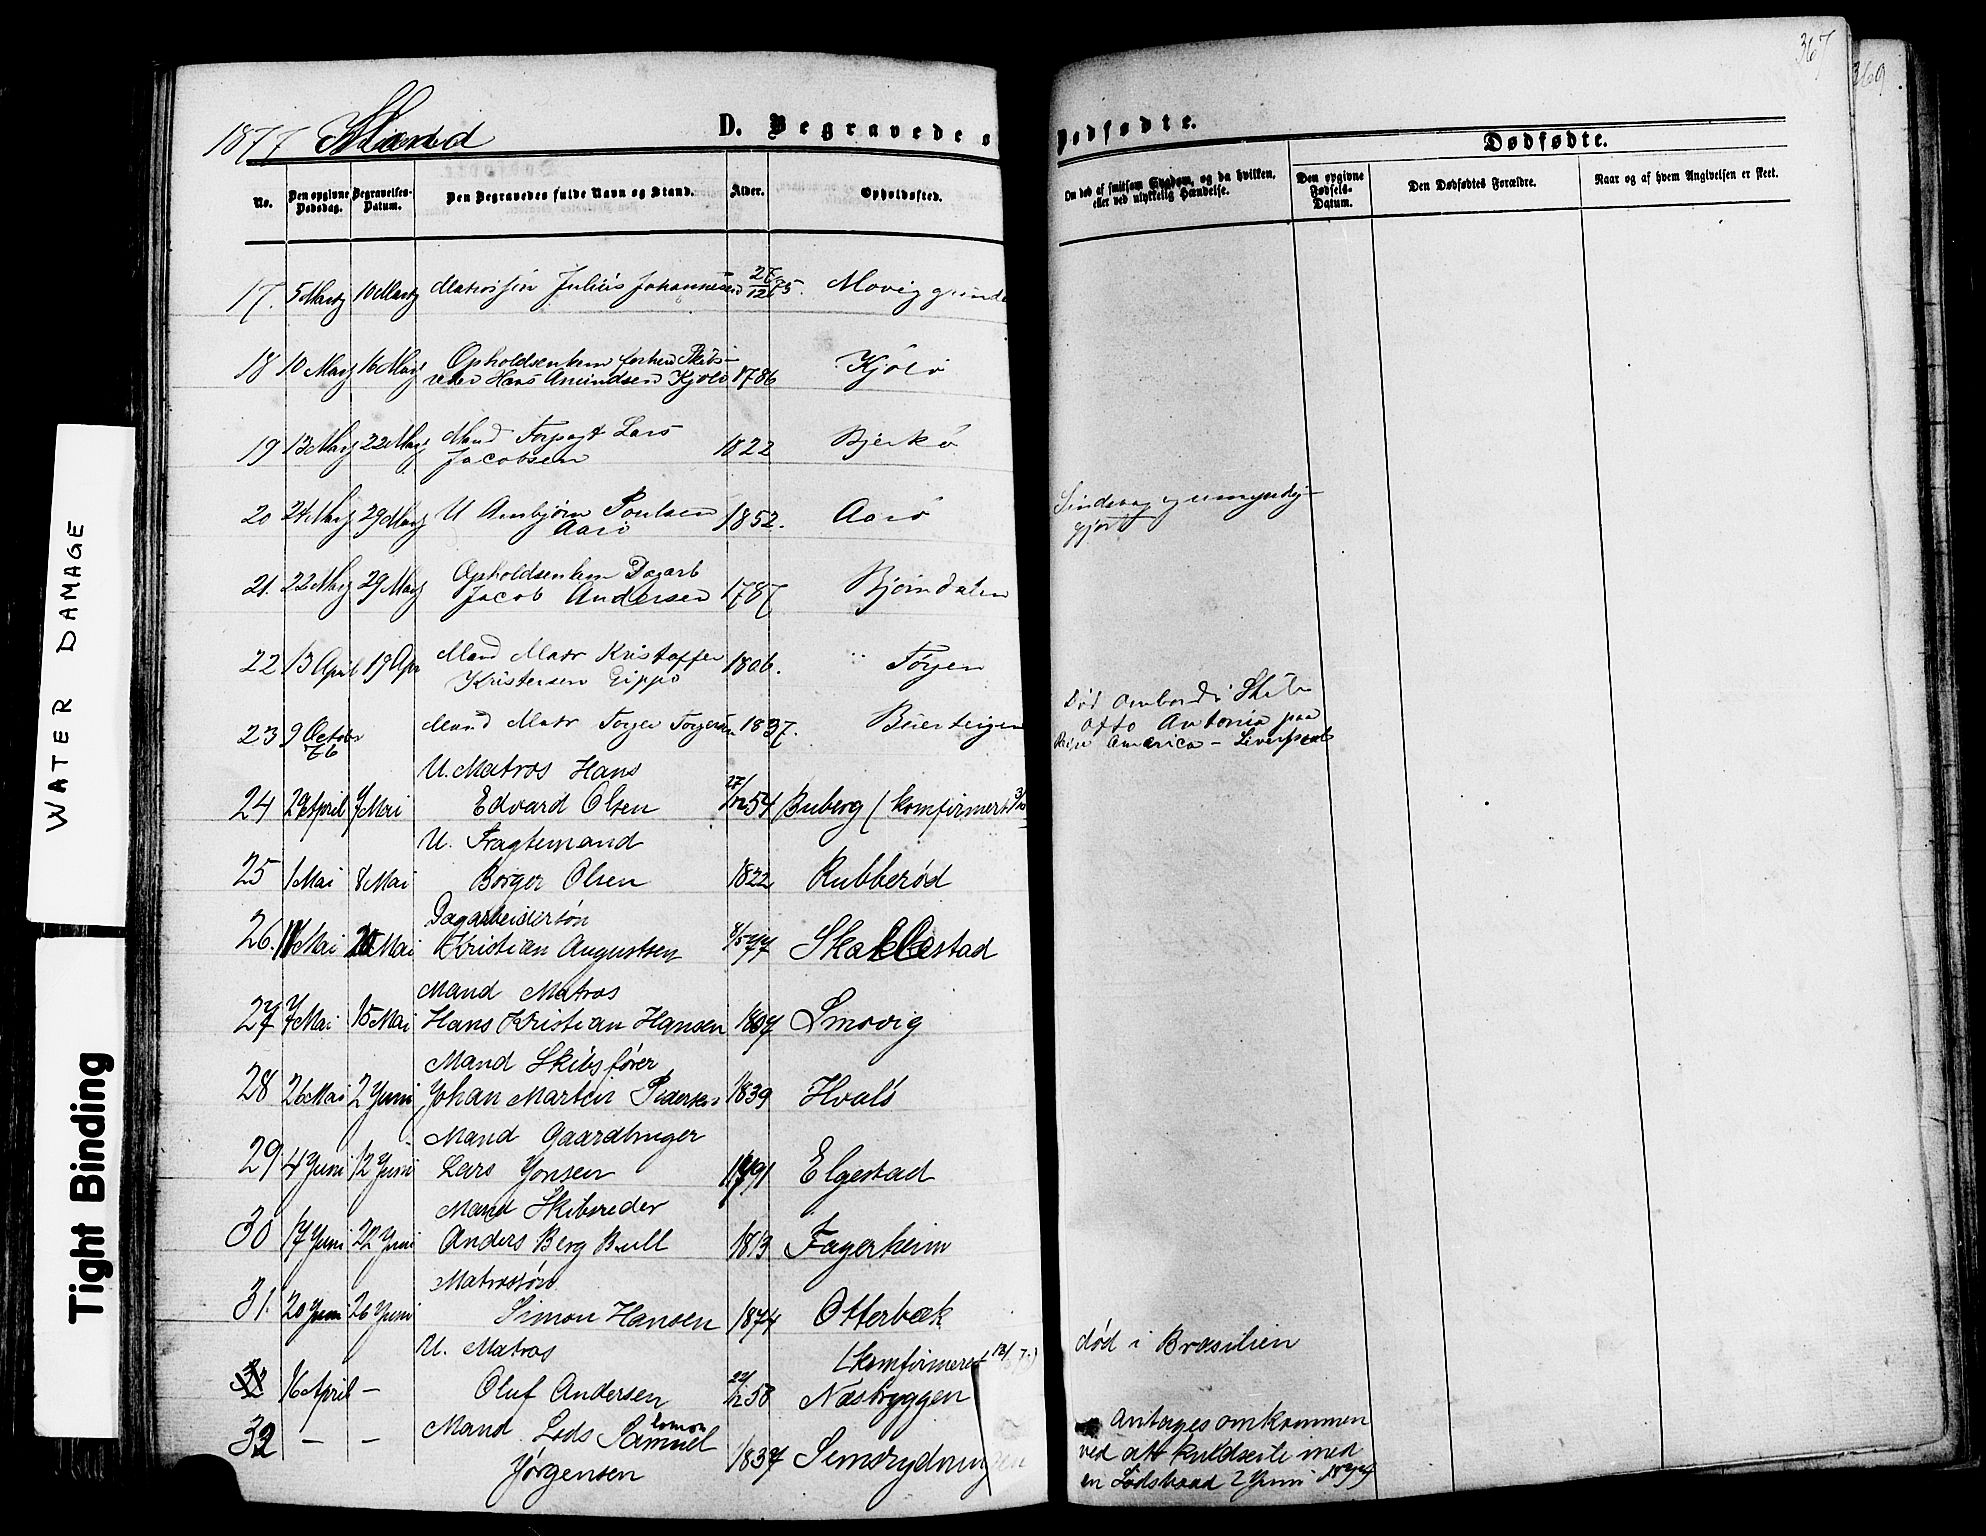 WATER DAMAGE
Tight Binding
1877 Mænd
D. Begravede o
No.
Den opgivne Dødsdag.
Begravelses-Datum.
Den Begravedes fulde Navn og Stand.
Alder.
Opholdssted.
17. 5 Marts 10 Marts Matrossøn Julius Johannesen 27/12 75. Movig
18 10 Marts 16 Marts Opholdsenkem forhen Skibs-
reder Hans Amundsen Kjølø 1786 Kjølø
19 13 Marts 22 Marts Mand Forpagt Lars
Jacobsen 1822 Bjerkø
20 24 Marts 29 Marts U Arnbjørn Poulsen
Aarø 1852. Aarø
21. 22 Marts 29 Marts Opholdsenkem Dagarb
Jacob Andersen 1787 Bjørndalen
22 13 April 19 Apr Mand Matr Kristoffer
Kristensen Gippø 1806. Torgen
23 9 Octobr
76 Mand Matr Torger Torgersen 1837.
U. Matros Hans
24 29 April 7 Mai Edvard Olsen 27/12 54 Buberg (komfirmert
U. Fragtemand
25 1 Mai 8 Mai Borger Olsen 1822 Rubberød
Dagarbeidersøn
26. 11 Mai 20 Mai Kristian Augustsen 8/5 77 Skallestad
Mand Matros
27 7 Mai 15 Mai Hans Kristian Hansen 1807 Smovig
Mand Skibsfører
28 26 Mai 2 Juni Johan Martin Pedersen 1839 Hvalø
Mand Gaardbruger
29 4 Juni 12 Juni Lars Jonsen 1791 Elgestad
Mand Skibsreder
30 17 Juni 22 Juni Anders Berg Bull 1813 Fagerheim
Matrossøn
31. 20 Juni 26 Juni Simon Hansen 1874 Otterbæk
U. Matros (komfirmeret
32 16 April – Oluf Andersen 58 Næsbryggen
Mand Lods Samuel
lomon
32 – – Jørgensen 1837 Semsrydningen
367
369
Dødfødte.
Dødfødte.
Om død af smitsom Sygdom, og da hvilken,
eller ved ulykkelig Hændelse.
Den opgivne Fødsels-Datum.
Den Dødfødtes Forældre.
Naar og af hvem Angivelsen er skeet.
Sindssvag og umyndig-
gjort
Død ombord i Skib
Otto Antonia paa
Reise America – Liverpool
død i Brasilien
Antages omkommen
ved at kuldseile med
en Lodsbaad 2 Juni 1877